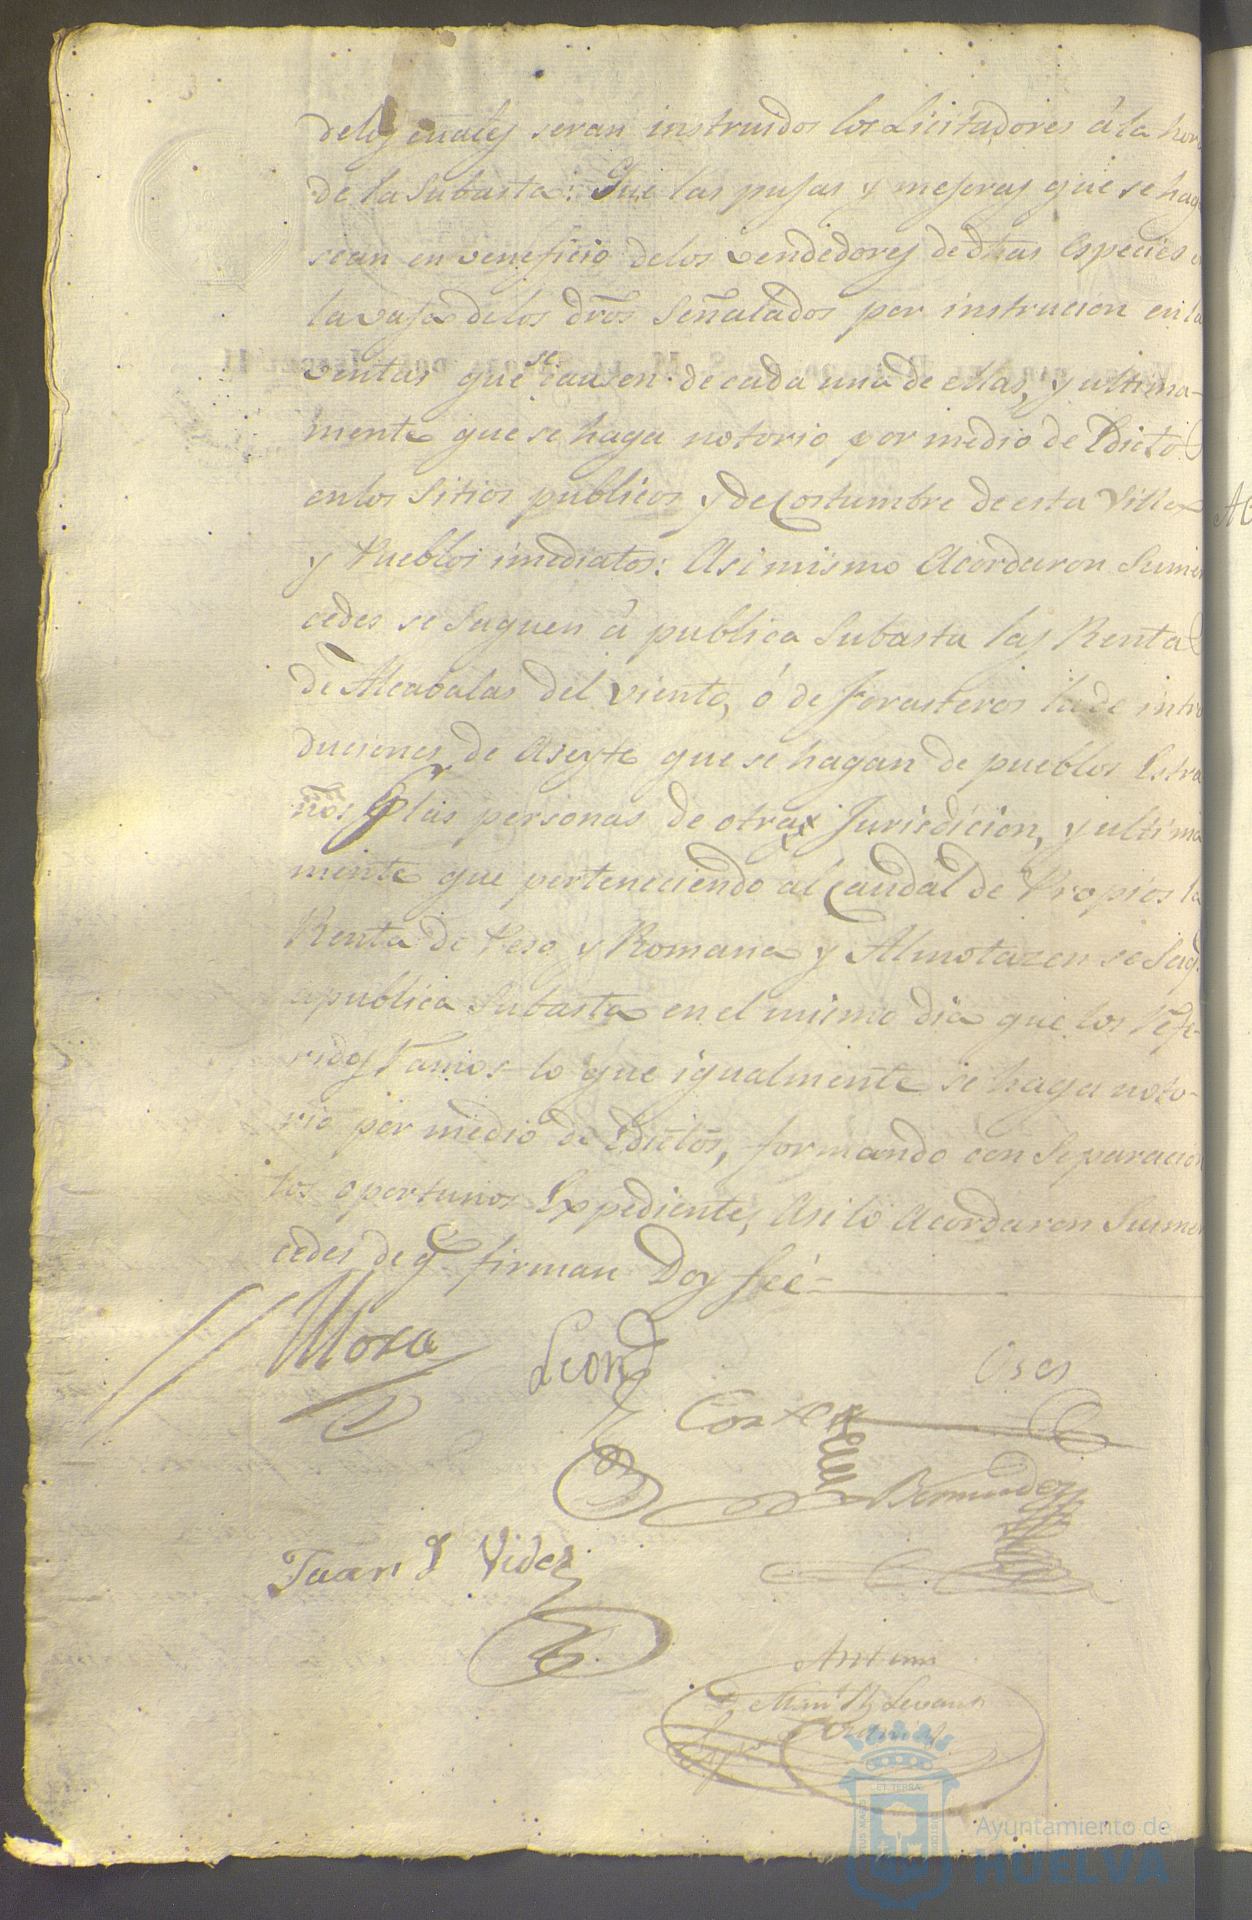 delos cuales seran instruidos los Licitadores á la hor
de la Subasta: Que las pujas y mejoras que se hag
sean en veneficio delos vendedores de dhas Especies
la vaja delos dros Señalados por instrucion en la
ventas que se causen de cada una de ellas, y ultima-
mente que se haga notorio por medio de Edictos
en los Sitios publicos y de Costumbre de esta Villa
y Pueblos imediatos: Asimismo Acordaron Sumer
cedes se Saquen á publica Subasta las Rentas
de Alcabalas del viento, ó de Forasteros la de intro
duciones de Aseyte que se hagan de pueblos Estra
ños las personas de otra Jurisdicion, y ultima
mente que perteneciendo al Caudal de Propios la
Renta de Peso y Romana y Almotazen se Saq
a publica Subasta en el mismo dia que los refe-
ridos ramos lo que igualmente se haga noto-
rio por medio de Edictos, formando con Separacion
los oportunos Expedientes, Asi lo Acordaron Sumer
cedes de q.e firman Doy feé-
Mora
Leon
Oses
Cortes
Bermudez
Juan J Vides
Ante mi
Ayuntamiento de
HUELVA